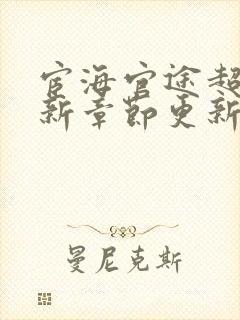 宦海官途超
新章节更新
曼尼克斯